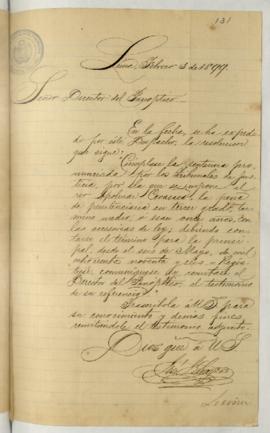 131
Lima, Febrero 3 de 1899.
Señor Director del Panóptico.
En la fecha, se ha expedi
do por este Despacho, la resolucion
que sigue:
"Cúmplase la sentencia pro
nunciada por los Tribunales de Jus
ticia, por la que se impone al
reo Apolinar la pena
de penitenciaria en tercer grado, tér
mino, o sean once años, con
las accesorias de ley; debiendo con
tarse el término para la princi
pal, desde el seis de Mayo, de mil
ochocientos noventa y dos.- Regis
trese, comuníquese y remítase al
Director del Panóptico, el testimonio
de su referencia."
Trascríbola á US. para
su conocimiento y demas fines
remitiéndole el testimonio adjunto.
Dios gue á US.